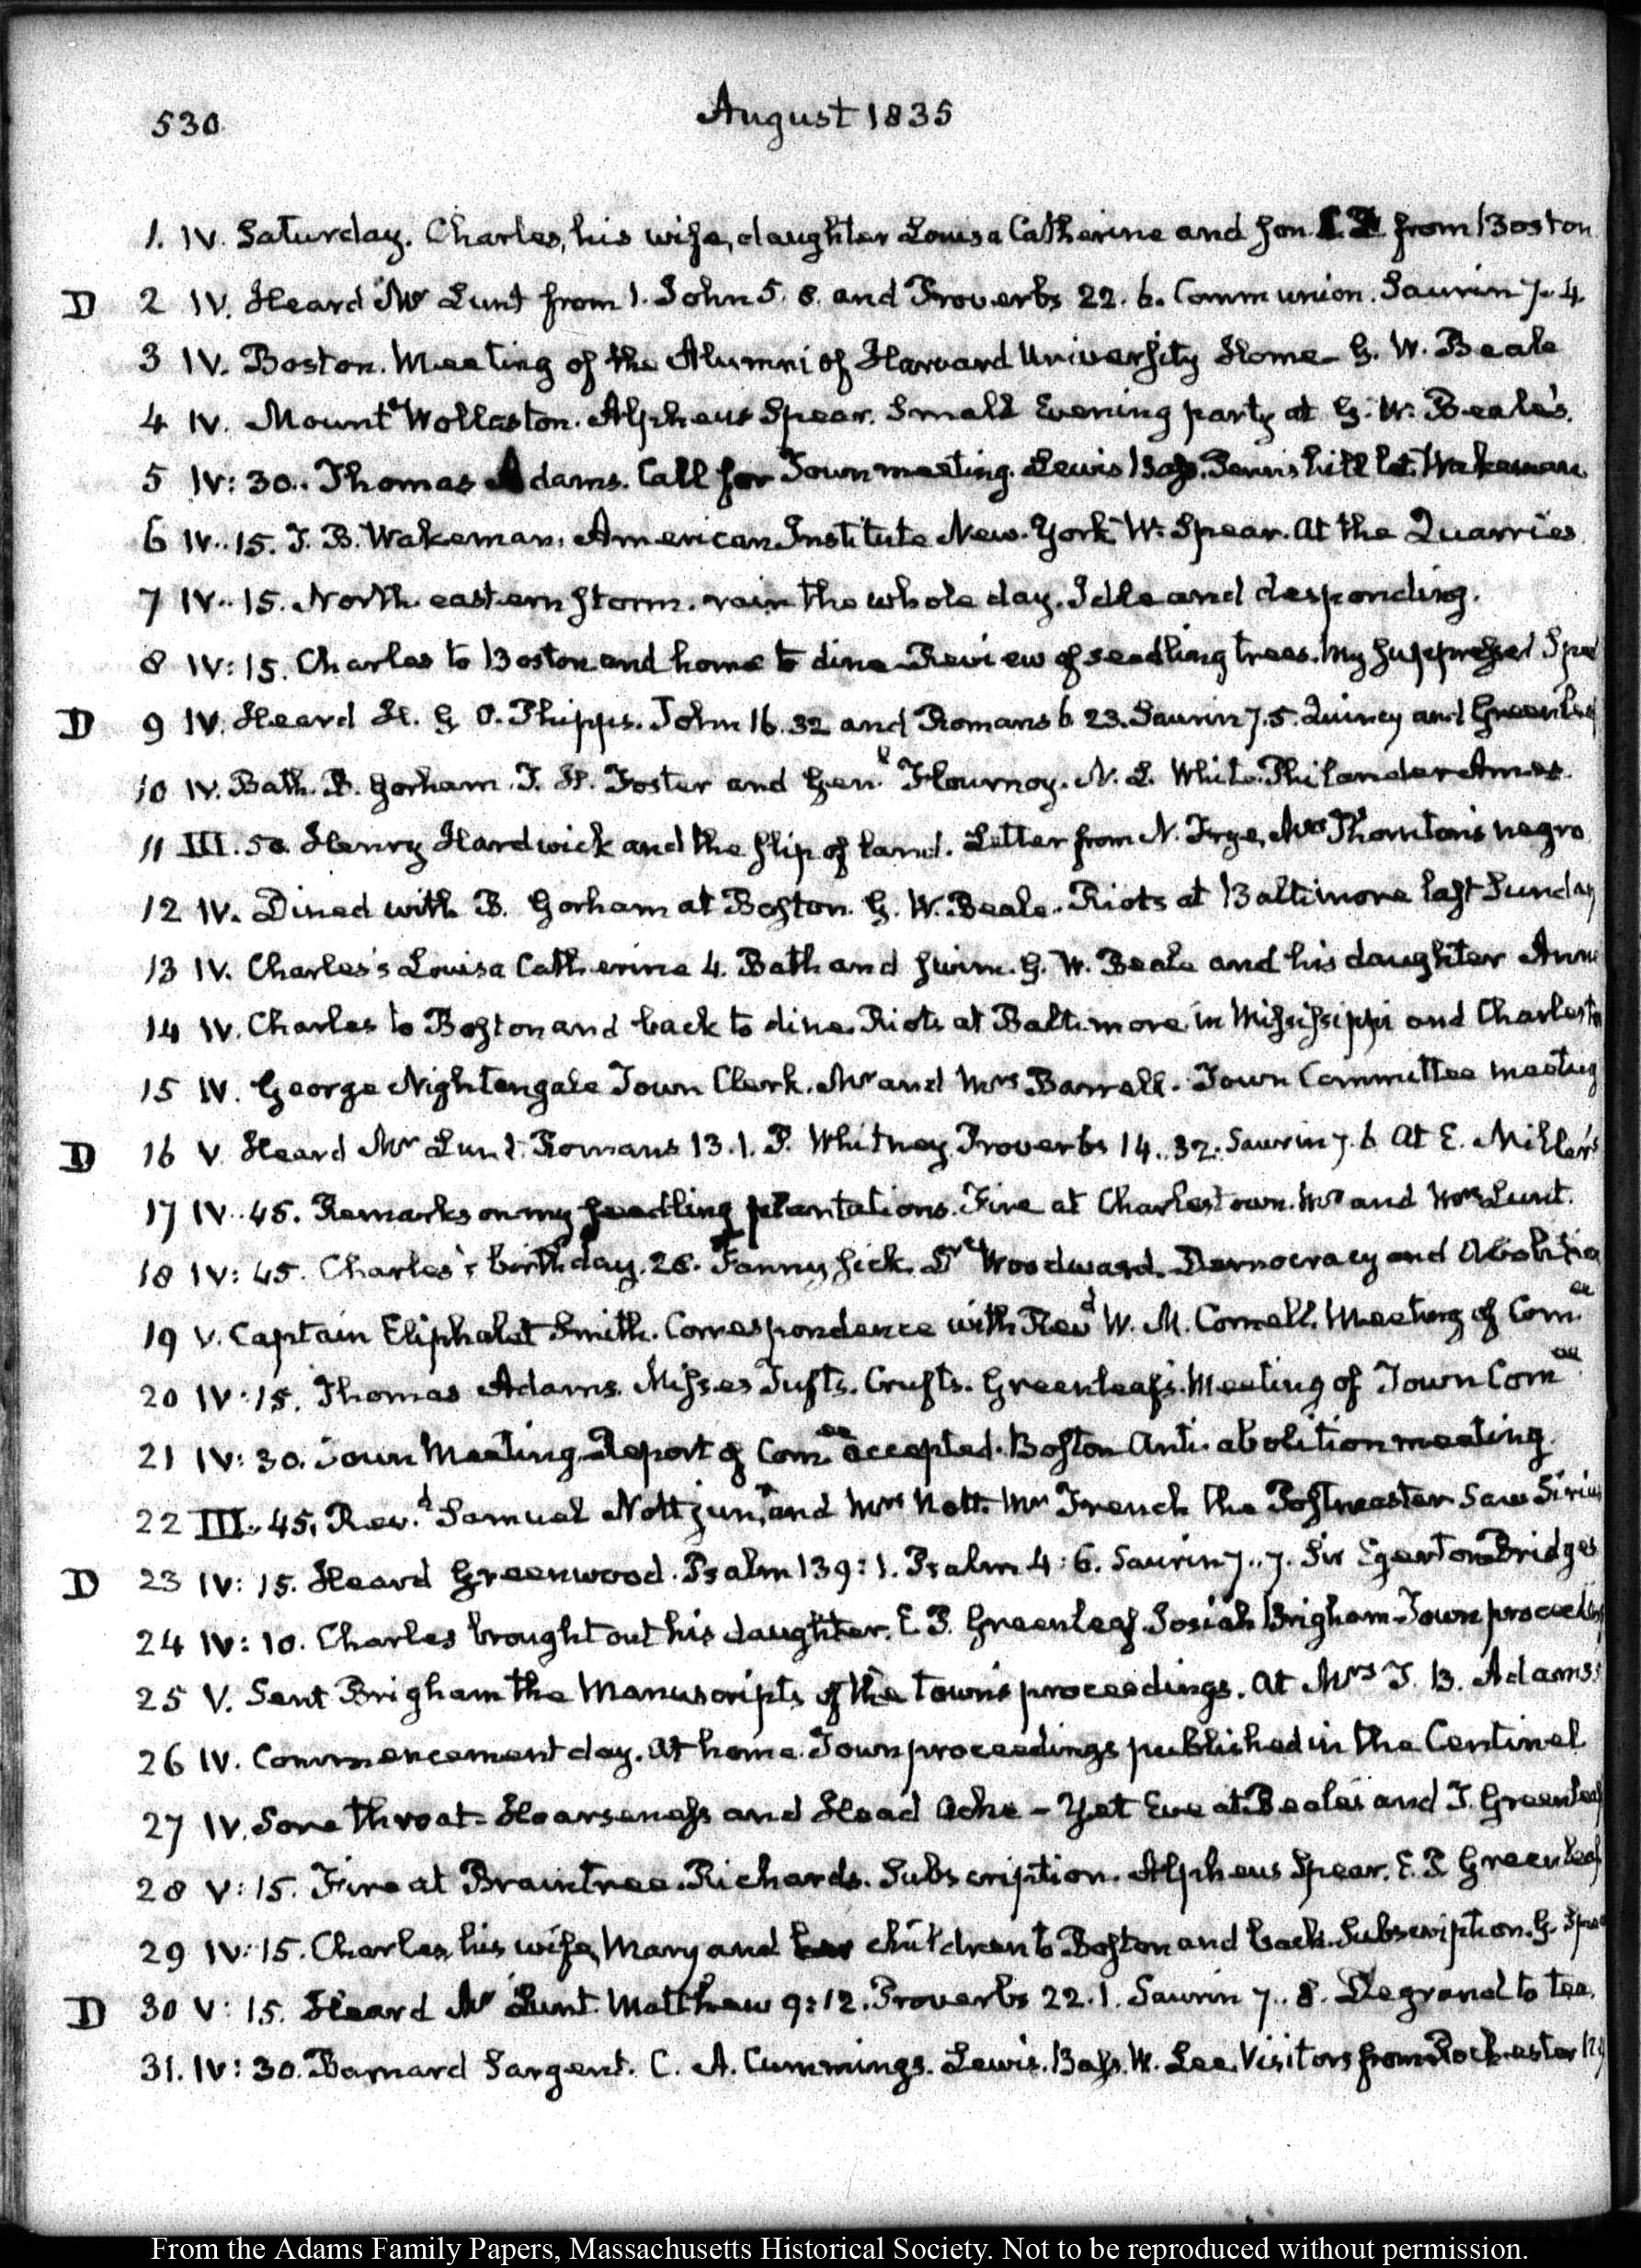 530
August 1835
1. IV. Saturday. Charles, his wife, daughter Louisa Catherine and son from Boston
D 2 IV. Heard Mr Lunt from 1. John 5. 8. and Proverbs 22. 6. Communion. Saurin 7. 4.
3 IV. Boston. Meeting of the Alumni of Harvard University Home - G. W. Beale
4 IV. Mount Wollaston. Alpheus Spear. Small Evening party at G. W. Beale's.
5 IV: 30. Thomas Adams. Call for Town meeting. Lewis Bass. Penns hill lot. Wakeman
6 IV. 15. T. B. Wakeman. American Institute New-York W. Spear. At the Quarries
7 IV. 15. North eastern storm. rain the whole day. Idle and desponding.
8 IV: 15. Charles to Boston and home to dine. Review of seedling trees. My suppressed Spe
D 9 IV. Heard H. G O. Phipps. John 16. 32 and Romans 6 23. Saurin 7. 5. Quincy and Greenleaf
10 IV. Bath. B. Gorham. T. H. Foster and Genl Flournoy. N. L. White. Philander Ames.
11 III. 50. Henry Hardwick and the slip of land. Letter from N. Frye, Mrs Thornton's negro
12 IV. Dined with B. Gorham at Boston. G. W. Beale. Riots at Baltimore last Sunday
13 IV. Charles's Louisa Catherine 4. Bath and swim. G. W. Beale and his daughter Anne
14 IV. Charles to Boston and back to dine. Riots at Baltimore, in Mississippi and Charlesto
15 IV. George Nightengale Town Clerk. Mr and Mrs Barrell. Town Committee meeting
D 16 V. Heard Mr Lunt. Romans 13. 1. P. Whitney Proverbs 14. 32. Saurin 7. 6 At E. Miller's
17 IV. 45. Remarks on my seedling plantations. Fire at Charlestown. Mr and Mrs Lunt.
18 IV: 45. Charles's birth day. 28. Fanny sick. Dr Woodward. Democracy and Abolitio
19 V. Captain Eliphalet Smith. Correspondence with Revd W. M. Cornell. Meeting of Comee
20 IV: 15. Thomas Adams. Misses Tufts. Crufts. Greenleafs. Meeting of Town Comee
21 IV: 30. Town Meeting. Report of Comee accepted. Boston Anti-abolition meeting.
22 III. 45. Revd Samuel Nott junr and Mrs Nott. Mr French the Postmaster Saw Sirius
D 23 IV: 15. Heard Greenwood. Psalm 139: 1. Psalm 4: 6. Saurin 7. 7. Sir Egerton Bridges
24 IV: 10. Charles brought out his daughter. E. P. Greenleaf. Josiah Brigham. Town proceedings
25 V. Sent Brigham the Manuscripts of the town's proceedings. At Mrs T. B. Adams's
26 IV. Commencement day. At home. Town proceedings published in the Centinel
27 IV. Sore throat - Hoarseness and Head Ache - Yet Eve at Beale's and T. Greenleaf
28 V: 15. Fire at Braintree. Richards. Subscription. Alpheus Spear. E. P. Greenleaf
29 IV: 15. Charles, his wife, Mary and children to Boston and back. Subscription. G. Spea
D 30 V: 15. Heard Mr Lunt. Matthew 9: 12. Proverbs 22. 1. Saurin 7. 8. Degrand to tea.
31. IV: 30. Barnard Sargent. C. A. Cummings. Lewis Bass. W. Lee. Visitors from Rochester NY
From the Adams Family Papers, Massachusetts Historical Society. Not to be reproduced without permission.